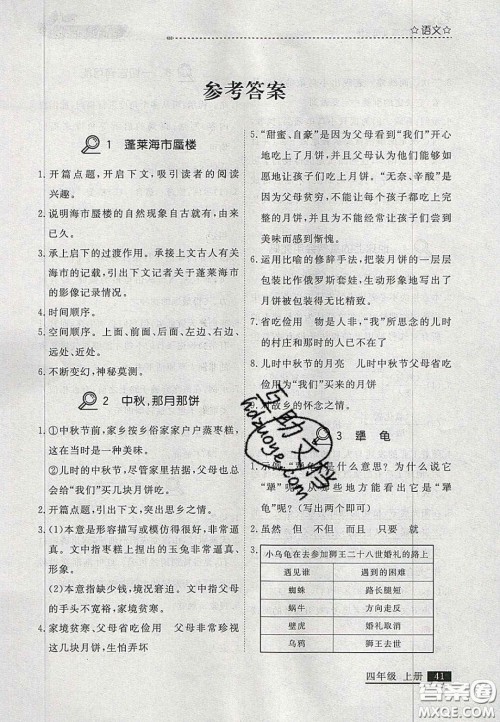 ☆语文☆
参考答案
1 蓬莱海市蜃楼
1. 开篇点题，开启下文，吸引读者的阅读
兴趣。
2. 说明海市蜃楼的自然现象自古就有，由来
已久。
3. 承上启下的过渡作用。承接上文古人有关
海市的记载，引出下文记者关于蓬莱海市
的影像记录情况。
4. 时间顺序。
5. 空间顺序。上面、前面、后面、左边、右边、
远处。
6. 不断变幻，神秘莫测。
2 中秋，那月那饼
1. ①中秋节前，家乡按乡俗家家户户蒸枣糕，
这在当时是一种美味。
②儿时的中秋节，尽管家里拮据，父母也总
会给“我”买几块月饼吃。
2. 开篇点题，引出下文，突出思乡之情。
3. (1)本意是形容描写或模仿得很好，非常逼
真。文中指枣糕上捏出的玉兔非常逼真、
形象。
(2)本意指缺少钱，境况窘迫。文中指父母
的手头不宽裕，家境贫寒。
4. 家境贫寒、省吃俭用 父母非常珍视
这几块月饼，生怕弄坏。
5. “甜蜜、自豪”是因为父母看到“我们”开心
地吃上了月饼，并且因为父母能够如
愿地让孩子们吃上月饼。“无奈、辛酸”是
因为父母贫穷，不能让每个孩子都吃上了
完整的月饼，并且对月饼不能给孩子们尝尝
美味而感到惭愧。
6. 运用比喻的修辞手法，把装月饼的一层层
包装比作俄罗斯套娃，生动形象地写出了
月饼被包装得无比精致。
7. 省吃俭用 物是人非，“我”所思念的儿时
的村庄和那时的人。
8. 儿时中秋节的月亮 儿时中秋节父母省吃
俭用为“我们”买来的月饼
9. 对故乡的怀念之情。
3 犟 龟
1. 示例：“犟”是什么意思？为什么说它
“犟”？从哪些地方能看出它是“犟
龟？（写出两个即可）
2. 虽然 但 不但 而且 只要 就
3.
小乌龟在去参加狮王二十八世婚礼的路上
遇见谁 遇到的困难
蜘蛛 路长腿短
蜗牛 方向走反
壁虎 婚礼取消
乌鸦 狮王去世
互助文档
hdzuoye.com
四年级 上册 41
答案圈
MXQE.COM